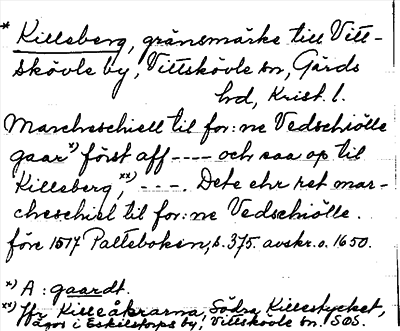 * Killeberg, gränsmärke till Vitt-
skövle by, Vittskövle sn, Gärds
hd, Krist. l.
Marcheschiell til for:ne Vedschiölle
gaar*) först aff ---- och saa op til
Killeberg,**) - - -. Dete ehr ret mar-
cheschiel til for:ne Vedschiölle.
före 1517 Palteboken, s. 375. avskr. o. 1650.
*) A: gaardt.
**) Jfr Killeåkrarna, Södra Killestycket,
ägor i Eskilstorps by, Vittskövle sn. SOS.